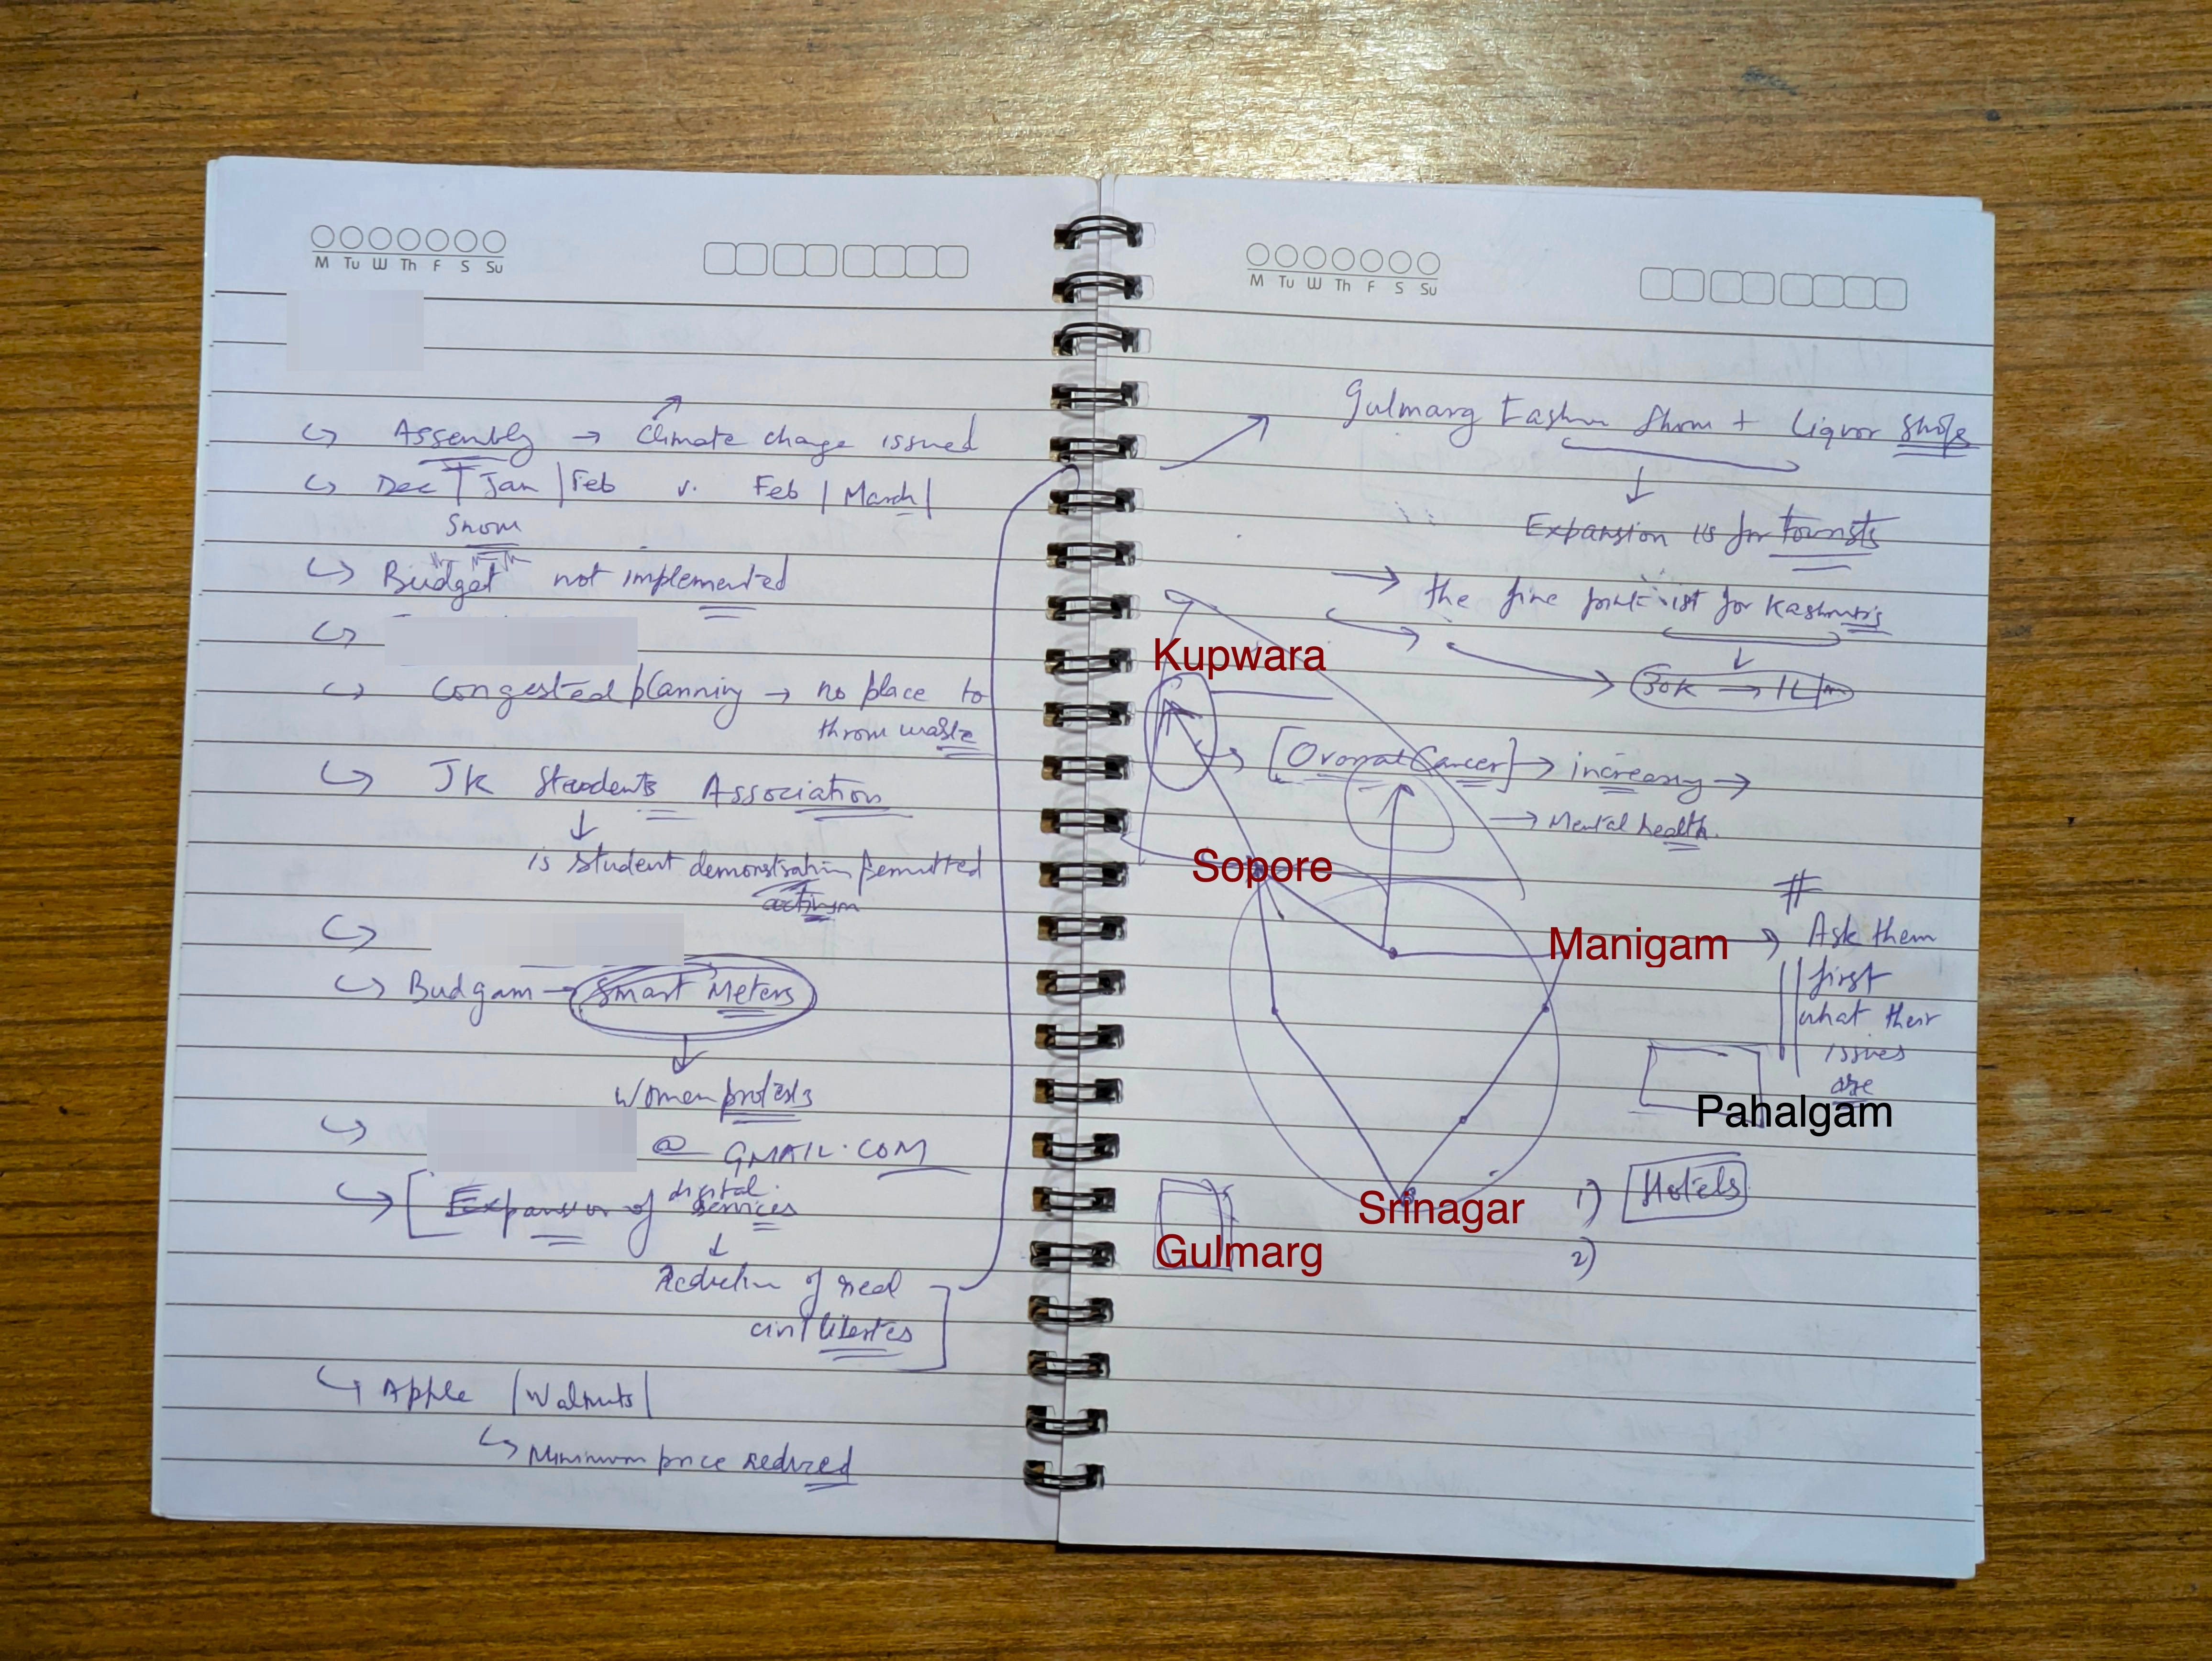 M Tu W Th F S Su
↪ Assembly → Climate change issued
↪ Dec | Jan | Feb v. Feb | March |
Snow
↪ Budget not implemented
↪
↪ Congested planning → no place to
throw waste
↪ JK Students Association
↓
is student demonstration permitted
↪
↪ Budgam → Smart Meters
↓
Women protests
↪ @ GMAIL.COM
↪ [ Expansion of digital services
↓
Reduction of real
civil liberties
↪ Apple | Walnuts |
↪ Minimum price reduced
M Tu W Th F S Su
Gulmarg Fashion Show + Liquor Shops
↓
Expansion is for tourists
→ the fine print is for Kashmiris
↓
30K → 1L
Kupwara
→ [ Cancer] → increasing →
→ Mental health.
Sopore
#
Manigam → Ask them
first
what their
issues
are
Pahalgam
1) Hotels
Srinagar
Gulmarg
2)